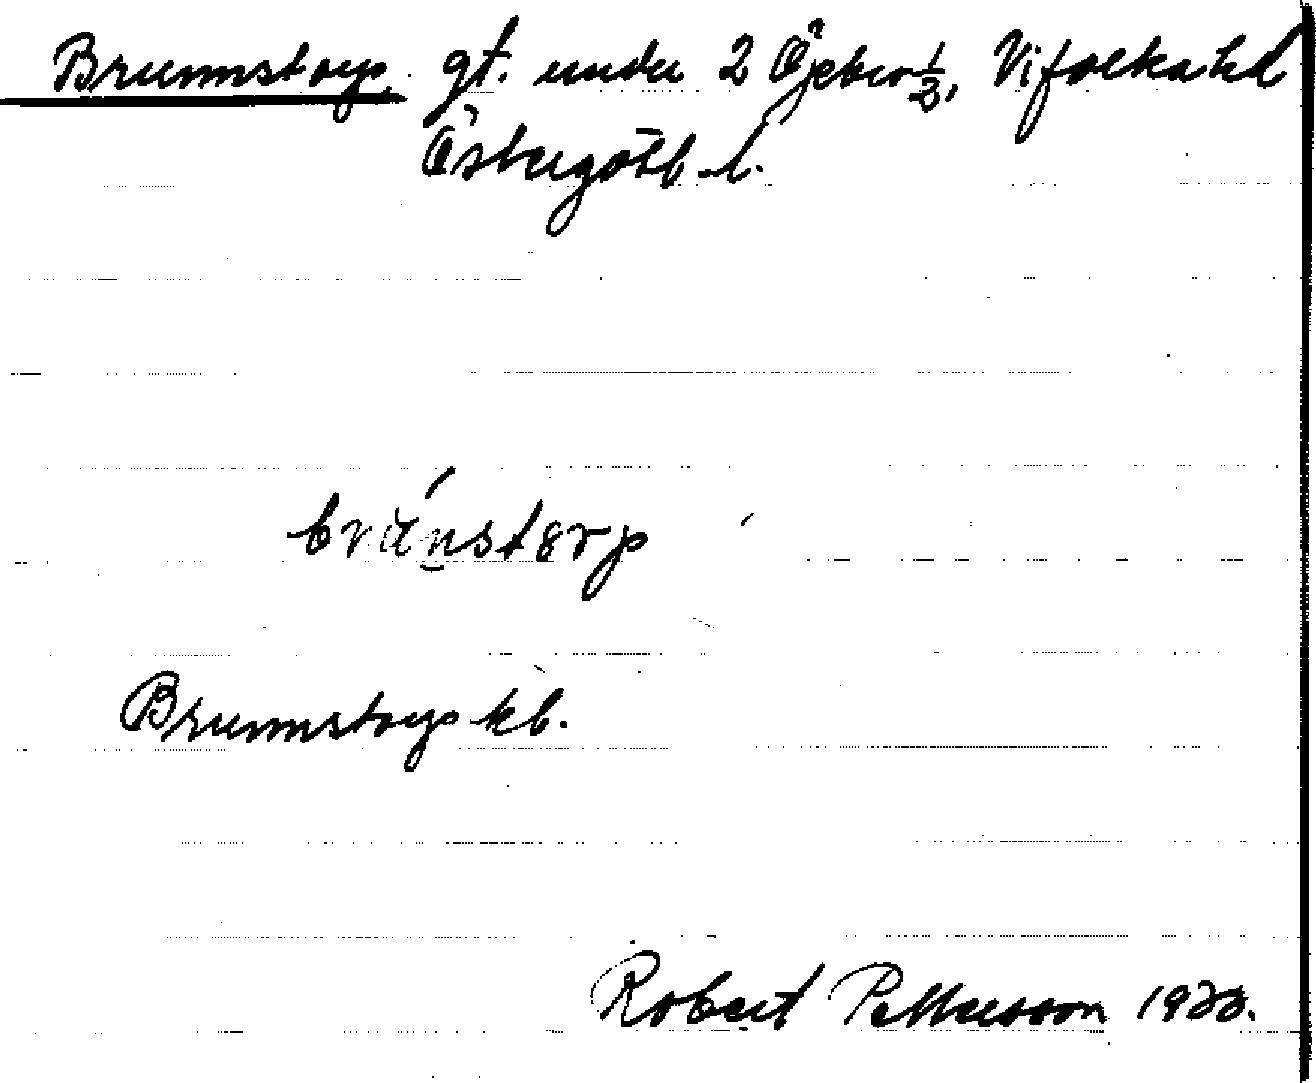 Brunnstorp. gt. under 2 Öjebro 1/2, Vifolka hd
Östergötl. l.
brúnstorp
Brunnstorp kb.
Robert Pettersson 1933.